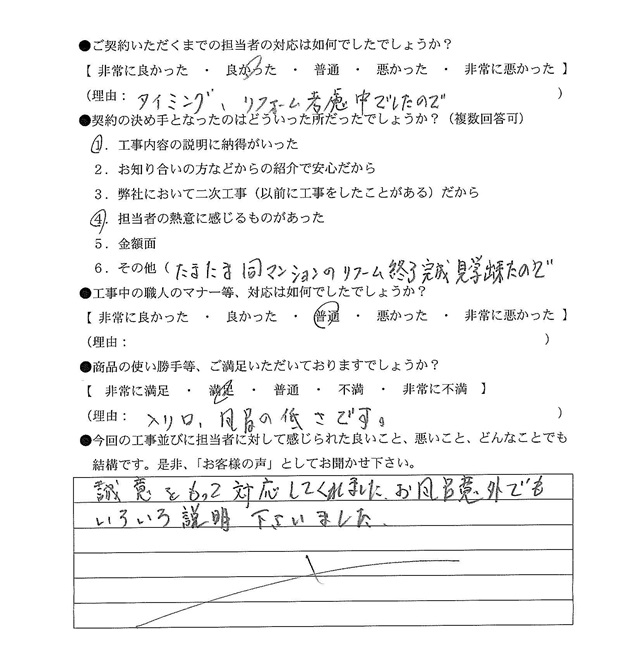 ●ご契約いただくまでの担当者の対応は如何でしたでしょうか？
【 非常に良かった ・ 良かった ・ 普通 ・ 悪かった ・ 非常に悪かった 】
（理由： タイミング、リフォーム考慮中でしたので ）
●契約の決め手となったのはどういった所だったでしょうか？（複数回答可）
1．工事内容の説明に納得がいった
2．お知り合いの方などからの紹介で安心だから
3．弊社において二次工事（以前に工事をしたことがある）だから
4．担当者の熱意に感じるものがあった
5．金額面
6．その他（たまたま同マンションのリフーム終了完成見学出来たので
●工事中の職人のマナー等、対応は如何でしたでしょうか？
【 非常に良かった ・ 良かった ・ 普通 ・ 悪かった ・ 非常に悪かった 】
（理由： ）
●商品の使い勝手等、ご満足いただいておりますでしょうか？
【 非常に満足 ・ 満足 ・ 普通 ・ 不満 ・ 非常に不満 】
（理由： 入り口、風呂の低さです。 ）
●今回の工事並びに担当者に対して感じられた良いこと、悪いこと、どんなことでも
結構です。是非、「お客様の声」としてお聞かせ下さい。
誠意をもって対応してくれました。お風呂意外でも
いろいろ説明下さいました。